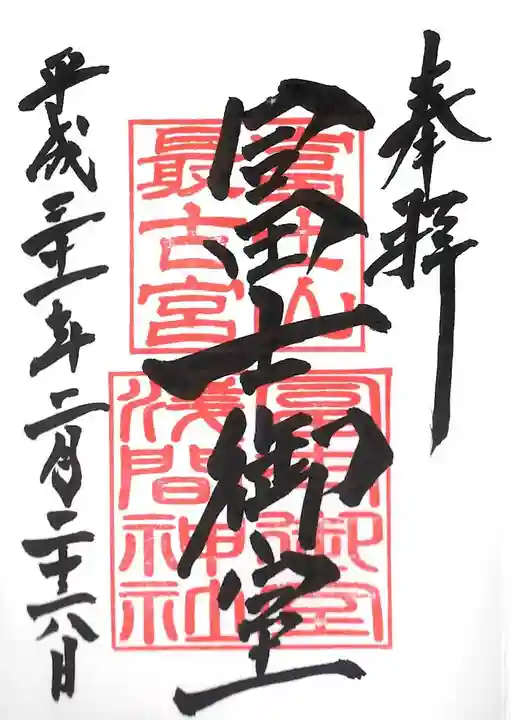 奉拝
冨士御室
富士山
最古宮
冨士御室
浅間神社
平成三十一年二月二十六日